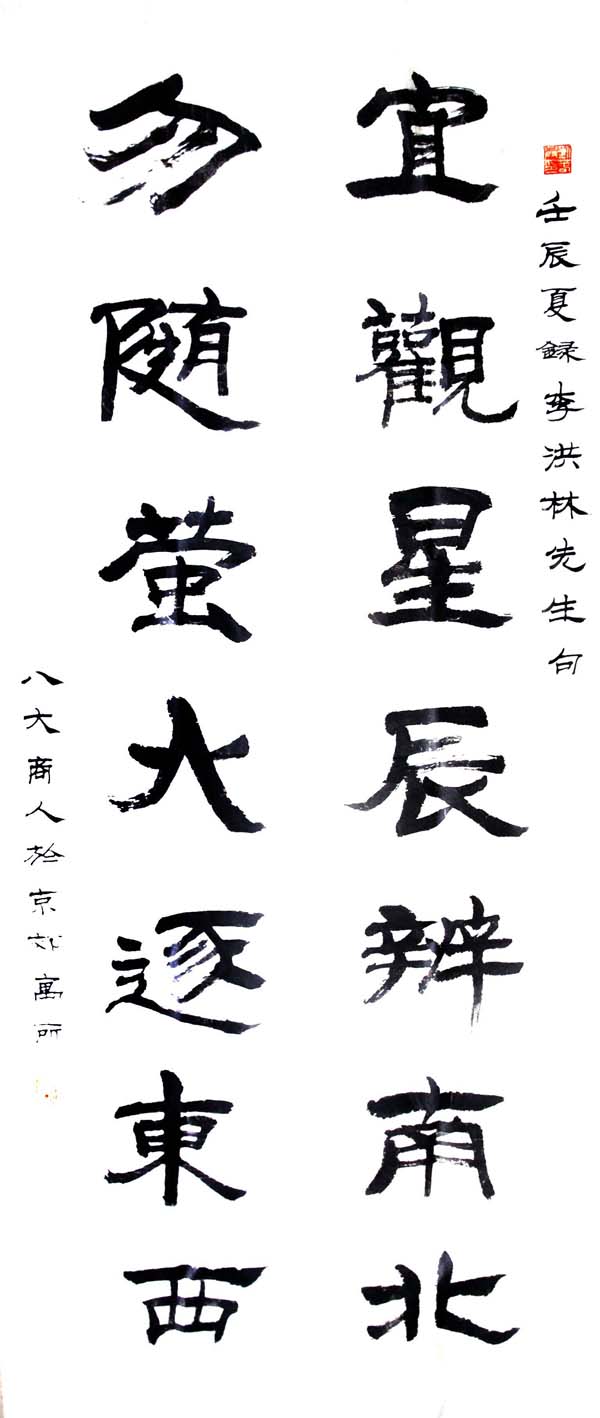 壬辰夏録李洪林先生句
宜觀星辰辨南北
勿随萤火逐東西
八大商人於京郊寓所